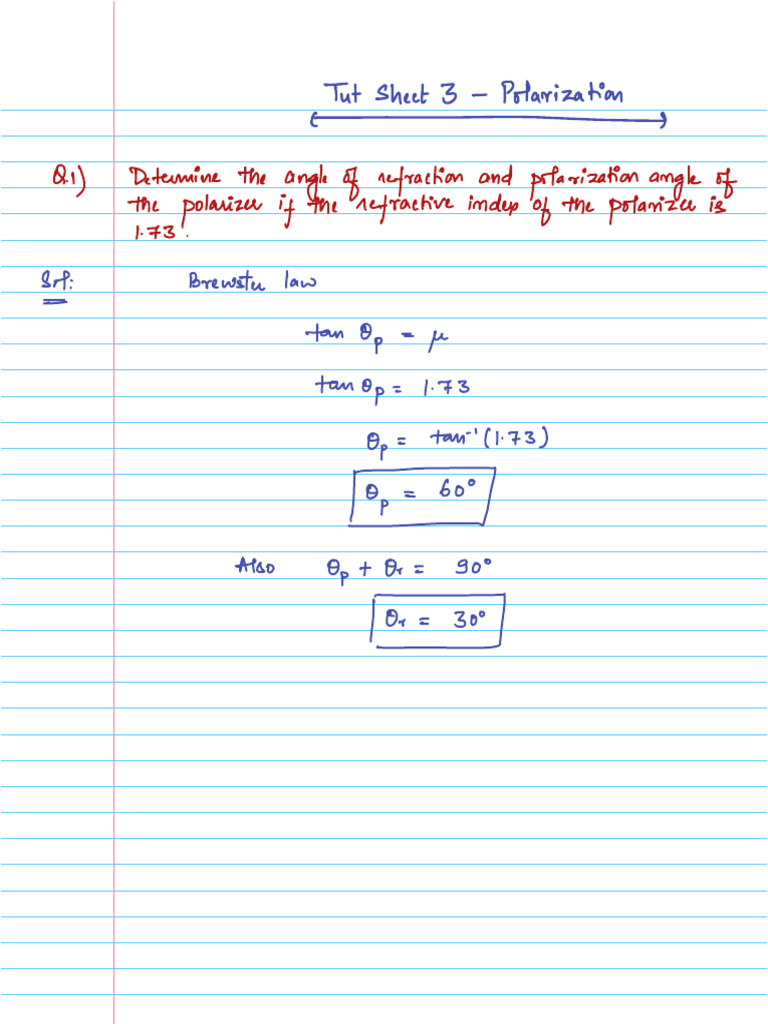 Tut Sheet 3 – Polarization
Q.1) Determine the angle of refraction and polarization angle of
the polarizer if the refractive index of the polarizer is
1.73.
Sol: Brewster law
tan θp = μ
tan θp = 1.73
θp = tan⁻¹(1.73)
θp = 60°
Also θp + θr = 90°
θr = 30°